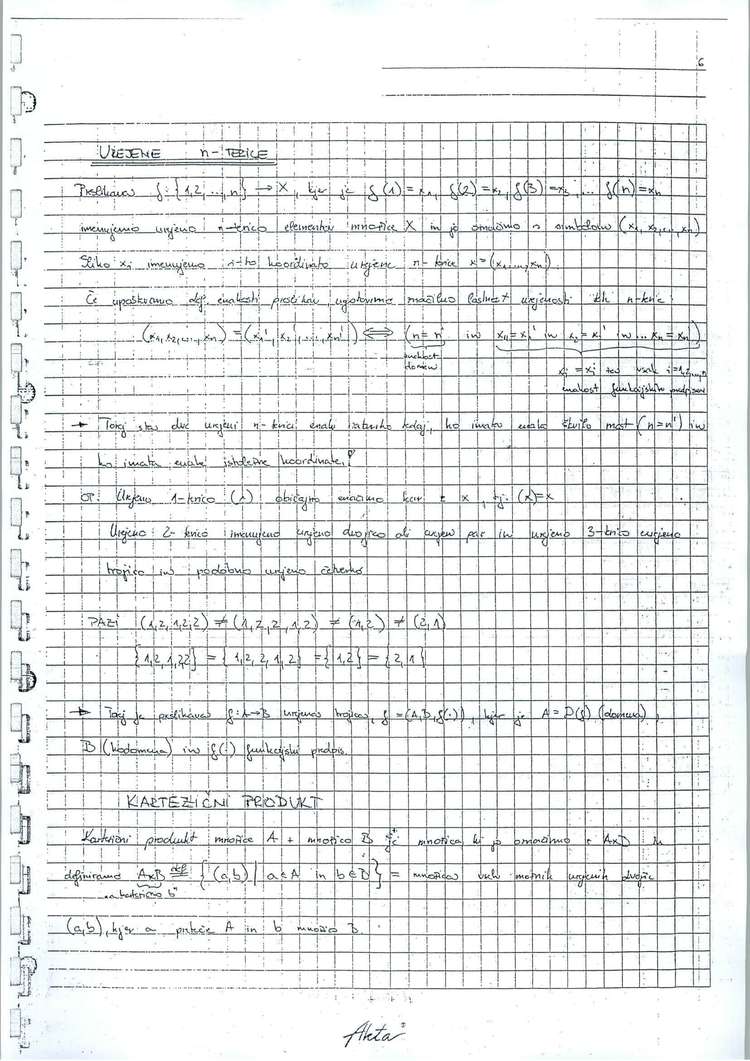 6
UREJENE n-TERICE
Preslikavo f: {1,2,...,n} → X, kjer je f(1)=x₁, f(2)=x₂, f(3)=x₃, ... f(n)=xₙ
imenujemo urejeno n-terico elementov množice X in jo označimo s simbolom (x₁, x₂,..., xₙ)
Sliko xᵢ imenujemo i-to koordinato urejene n-terice x=(x₁,...,xₙ).
Če upoštevamo def. enakosti preslikav, ugotovimo značilno lastnost urejenosti n-teric:
(x₁,x₂,...,xₙ)=(x₁',x₂',...,xₙ') ⟺ (n=n' in x₁=x₁' in x₂=x₂' in ... xₙ=xₙ')
enakost domen
xᵢ=xᵢ' za vsak i=1,2,...,n
enakost funkcijskih predpisov
→ Torej sta dve urejeni n-terici enaki natanko tedaj, ko imata enako število mest (n=n') in
ko imata enake istoležne koordinate!
OP: Urejeno 1-terico (x) običajno enačimo kar z x, tj. (x)=x
Urejeno 2-terico imenujemo urejeno dvojico ali urejen par in urejeno 3-terico urejeno
trojico in podobno urejeno četverko.
PAZI (1,2,1,2,2) ≠ (1,2,2,1,2) ≠ (1,2) ≠ (2,1)
{1,2,1,2,2} = {1,2,2,1,2} = {1,2} = {2,1}
→ Torej je preslikava f:A→B urejena trojica, f=(A,B,f(.)), kjer je A=D(f) (domena),
B (kodomena) in f(.) funkcijski predpis.
KARTEZIČNI PRODUKT
Kartezični produkt množice A z množico B je množica, ki jo označimo z AxB in
definiramo AxB def= {(a,b) | a∈A in b∈B} = množica vseh možnih urejenih dvojic
"a kartezično b"
(a,b), kjer a preteče A in b množico B.
Akta